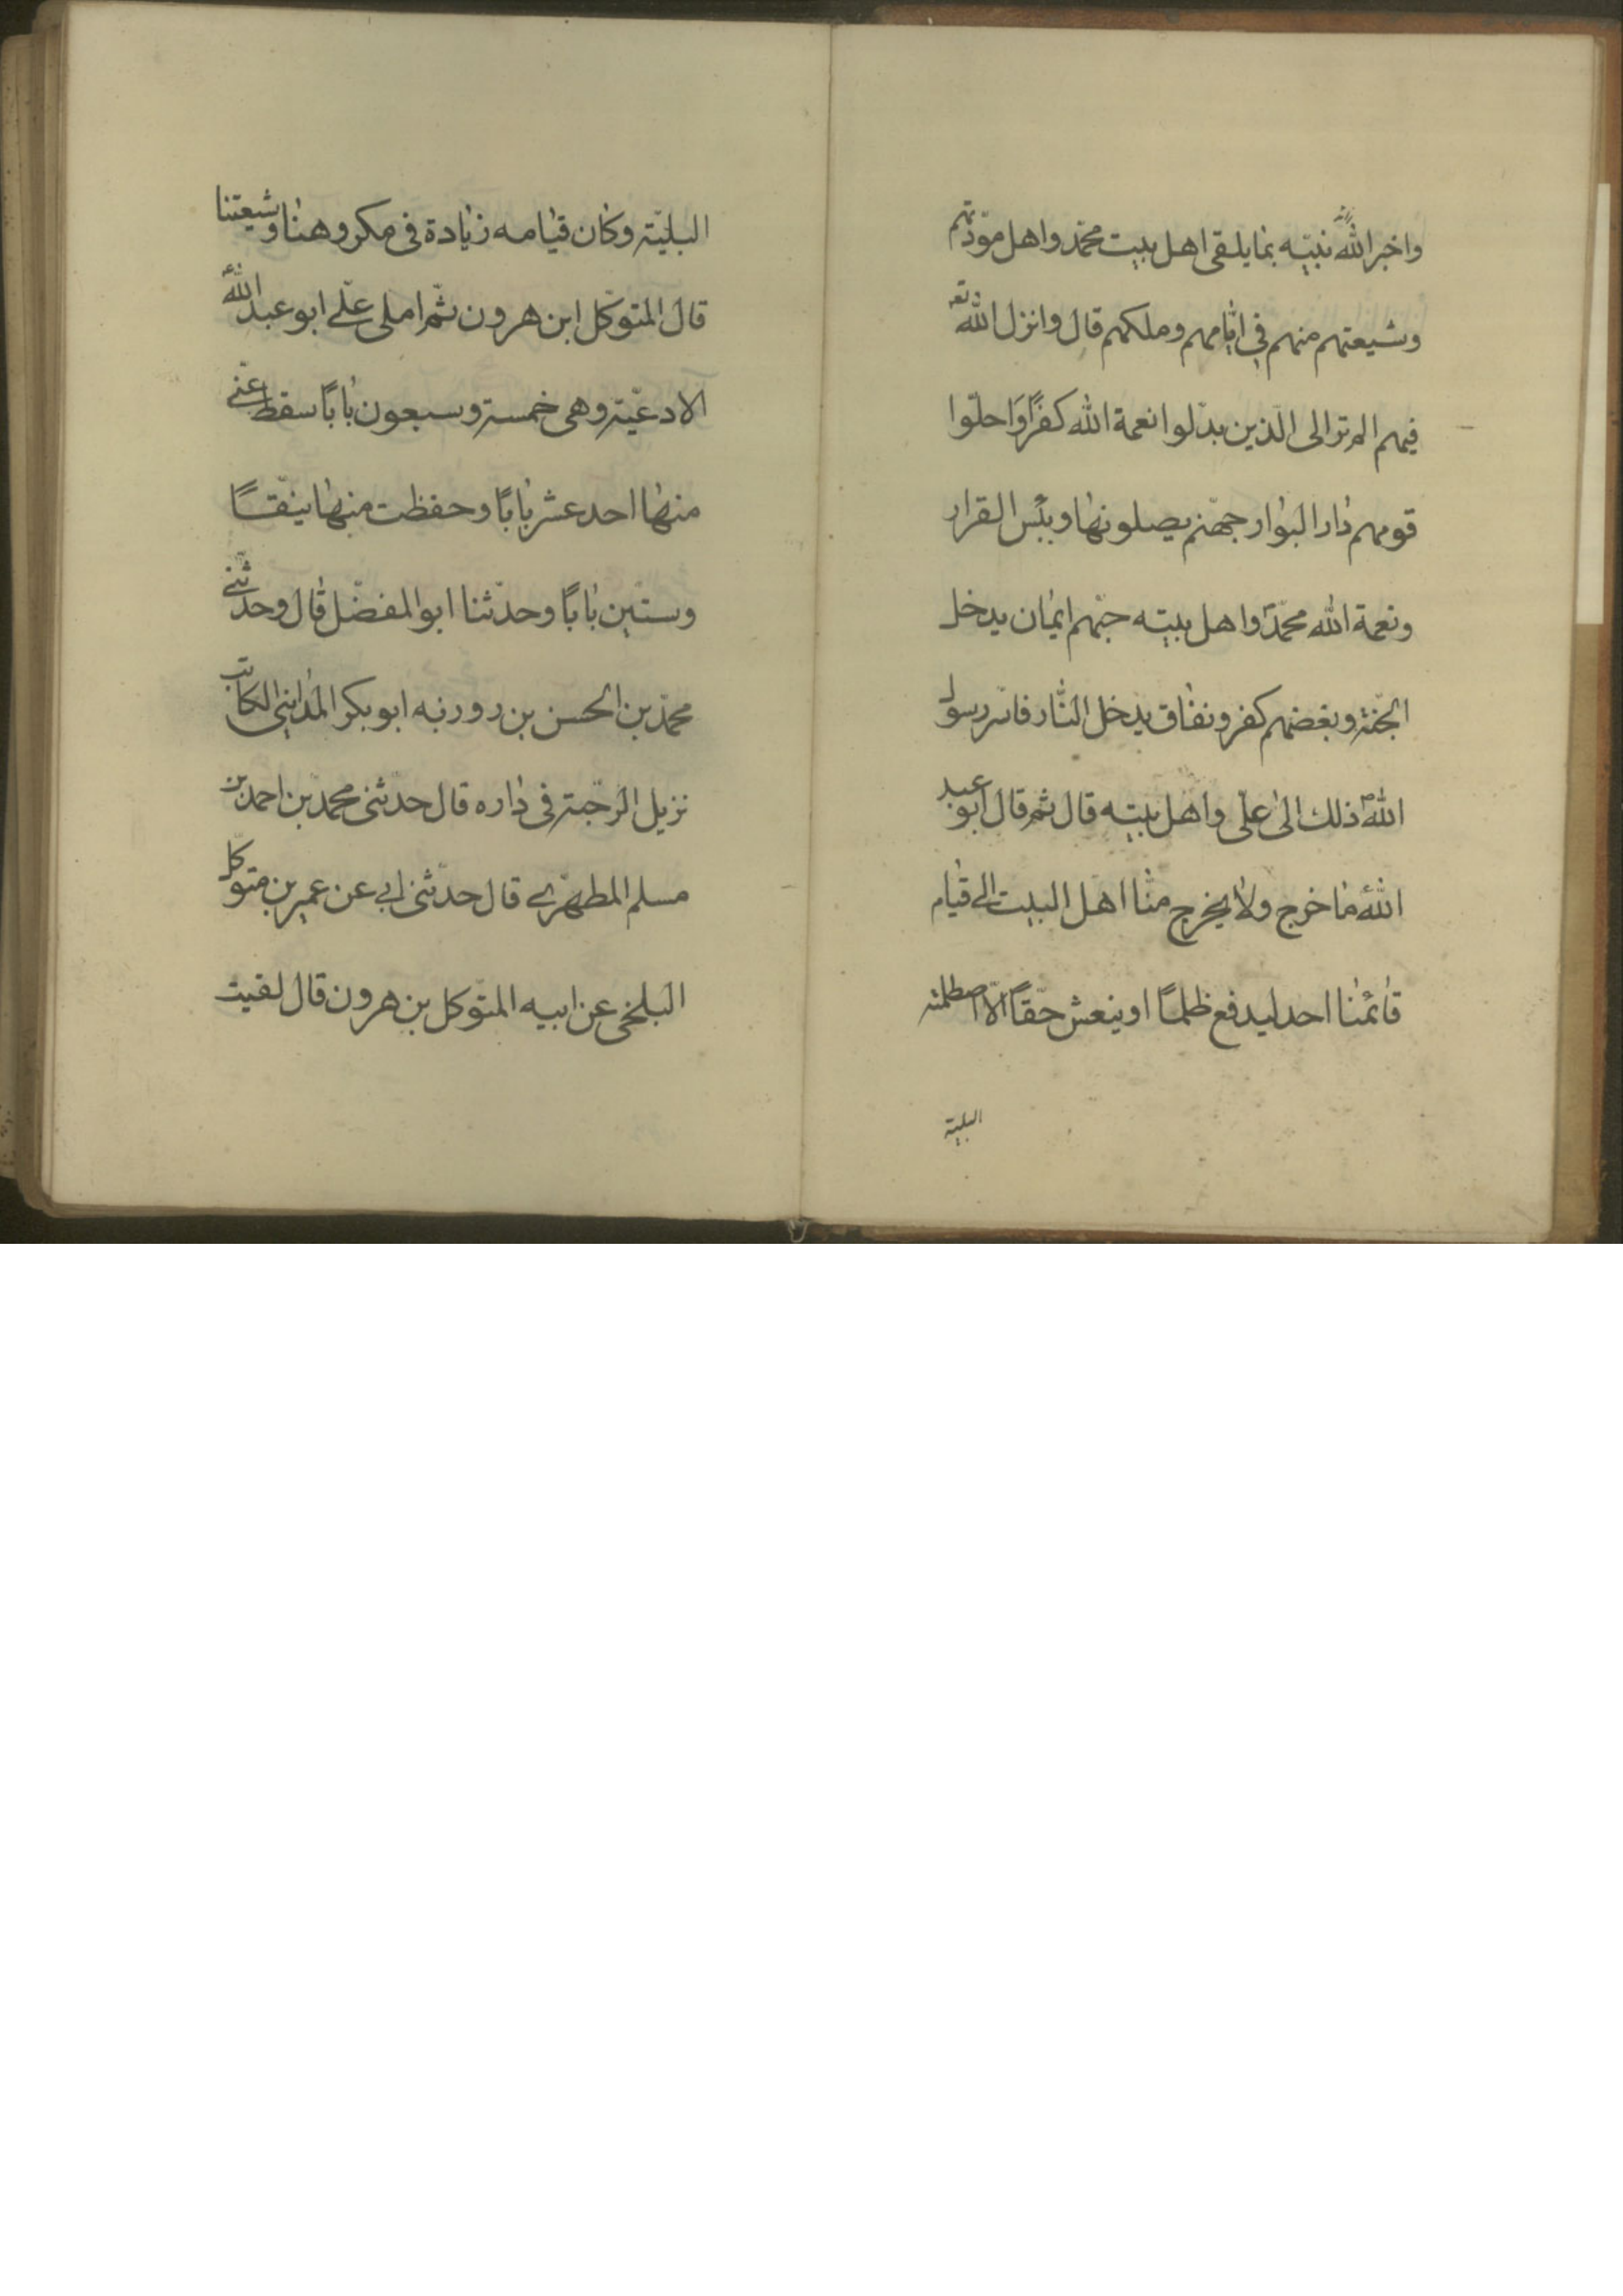 واخبر الله نبيّه بما يلقى اهل بيت محمّد واهل مودّتهم
وشيعتهم منهم في ايّامهم وملكهم قال وانزل الله تعه
فيهم الم تر الى الّذين بدّلوا نعمة الله كفرًا وَاحلّوا
قومهم دار البوار جهنّم يصلونها وبئس القرار
ونعمة الله محمّد واهل بيته حبّهم ايمان يدخل
الجنّة وبغضهم كفر ونفاق يدخل النّار فاسر رسول
اللهؐ ذلك الى علىّ واهل بيته قال ثم قال ابو عبد
اللهؑ ما خرج ولا يخرج منّا اهل البيت الى قيام
قائمنا احد ليدفع ظلمًا او ينعش حقّاً الّا اصطلمته
البلية
البليّة وكان قيامه زيادة فى مكروهنا وشيعتنا
قال المتوكّل ابن هرون ثمّ املى علّى ابو عبد اللهؑ
الادعيّة وهى خمسة وسبعون بابًا سقط عنّى
منها احد عشر بابًا وحفظت منها نيّفًا
وستّين بابًا وحدثنا ابو المفضّل قال وحدّثنى
محمّد بن الحسن بن روزبه ابو بكر المداينى الكاتب
نزيل الرحبة فى داره قال حدّثنى محمد بن احمد بن
مسلم المطهّرى قال حدّثنى ابى عن عمير بن متوكّل
البلخى عن ابيه المتوكل بن هرون قال لقيت